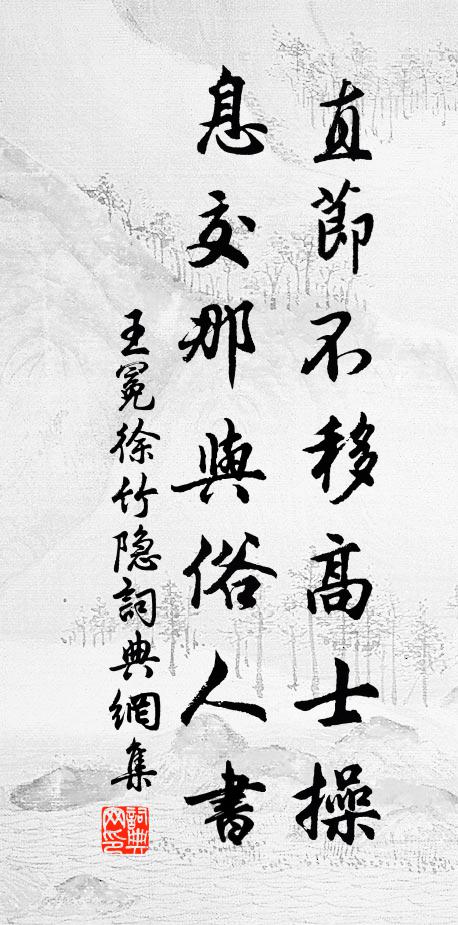 直節不移高士操
息交那與俗人書
王冕徐竹隐詞典網集
詞典網印